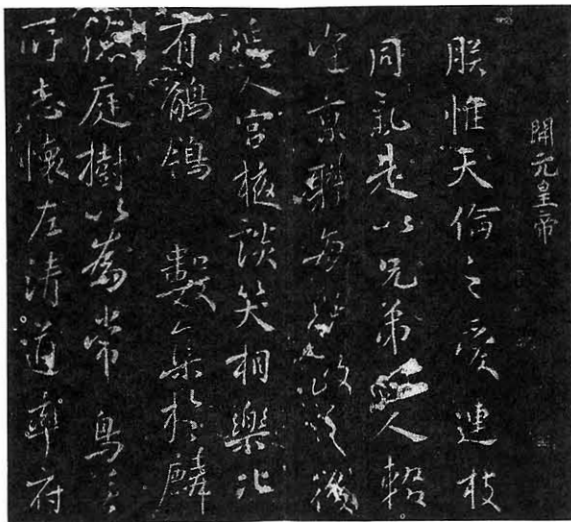 開元皇帝
朕惟天倫之愛連枝
同氣是以兄弟 人
京聯每 政之後
延入宮掖談笑相樂
有鶺鴒 數 集於麟
德庭樹以為常鳥
所志懷左清道率府